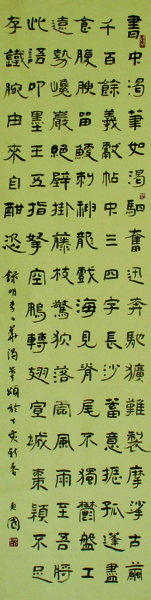 書中渴筆如渴驥奮迅奔馳獷難製摩挲古繭
千百餘羲獻中含三四字長沙蓄意振孤蓬盡
食腹腴留鯁刺神龍戲海見脊尾不獨鬱盤工
遠勢巉巖絕壁掛藤枝驚猱落雲風雨至吾將
此語叩墨王五指拏空鵬轉翅宣城棗穎不足
存鐵腕由來自酣恣 錄明李日華渴筆頌於丁亥新春